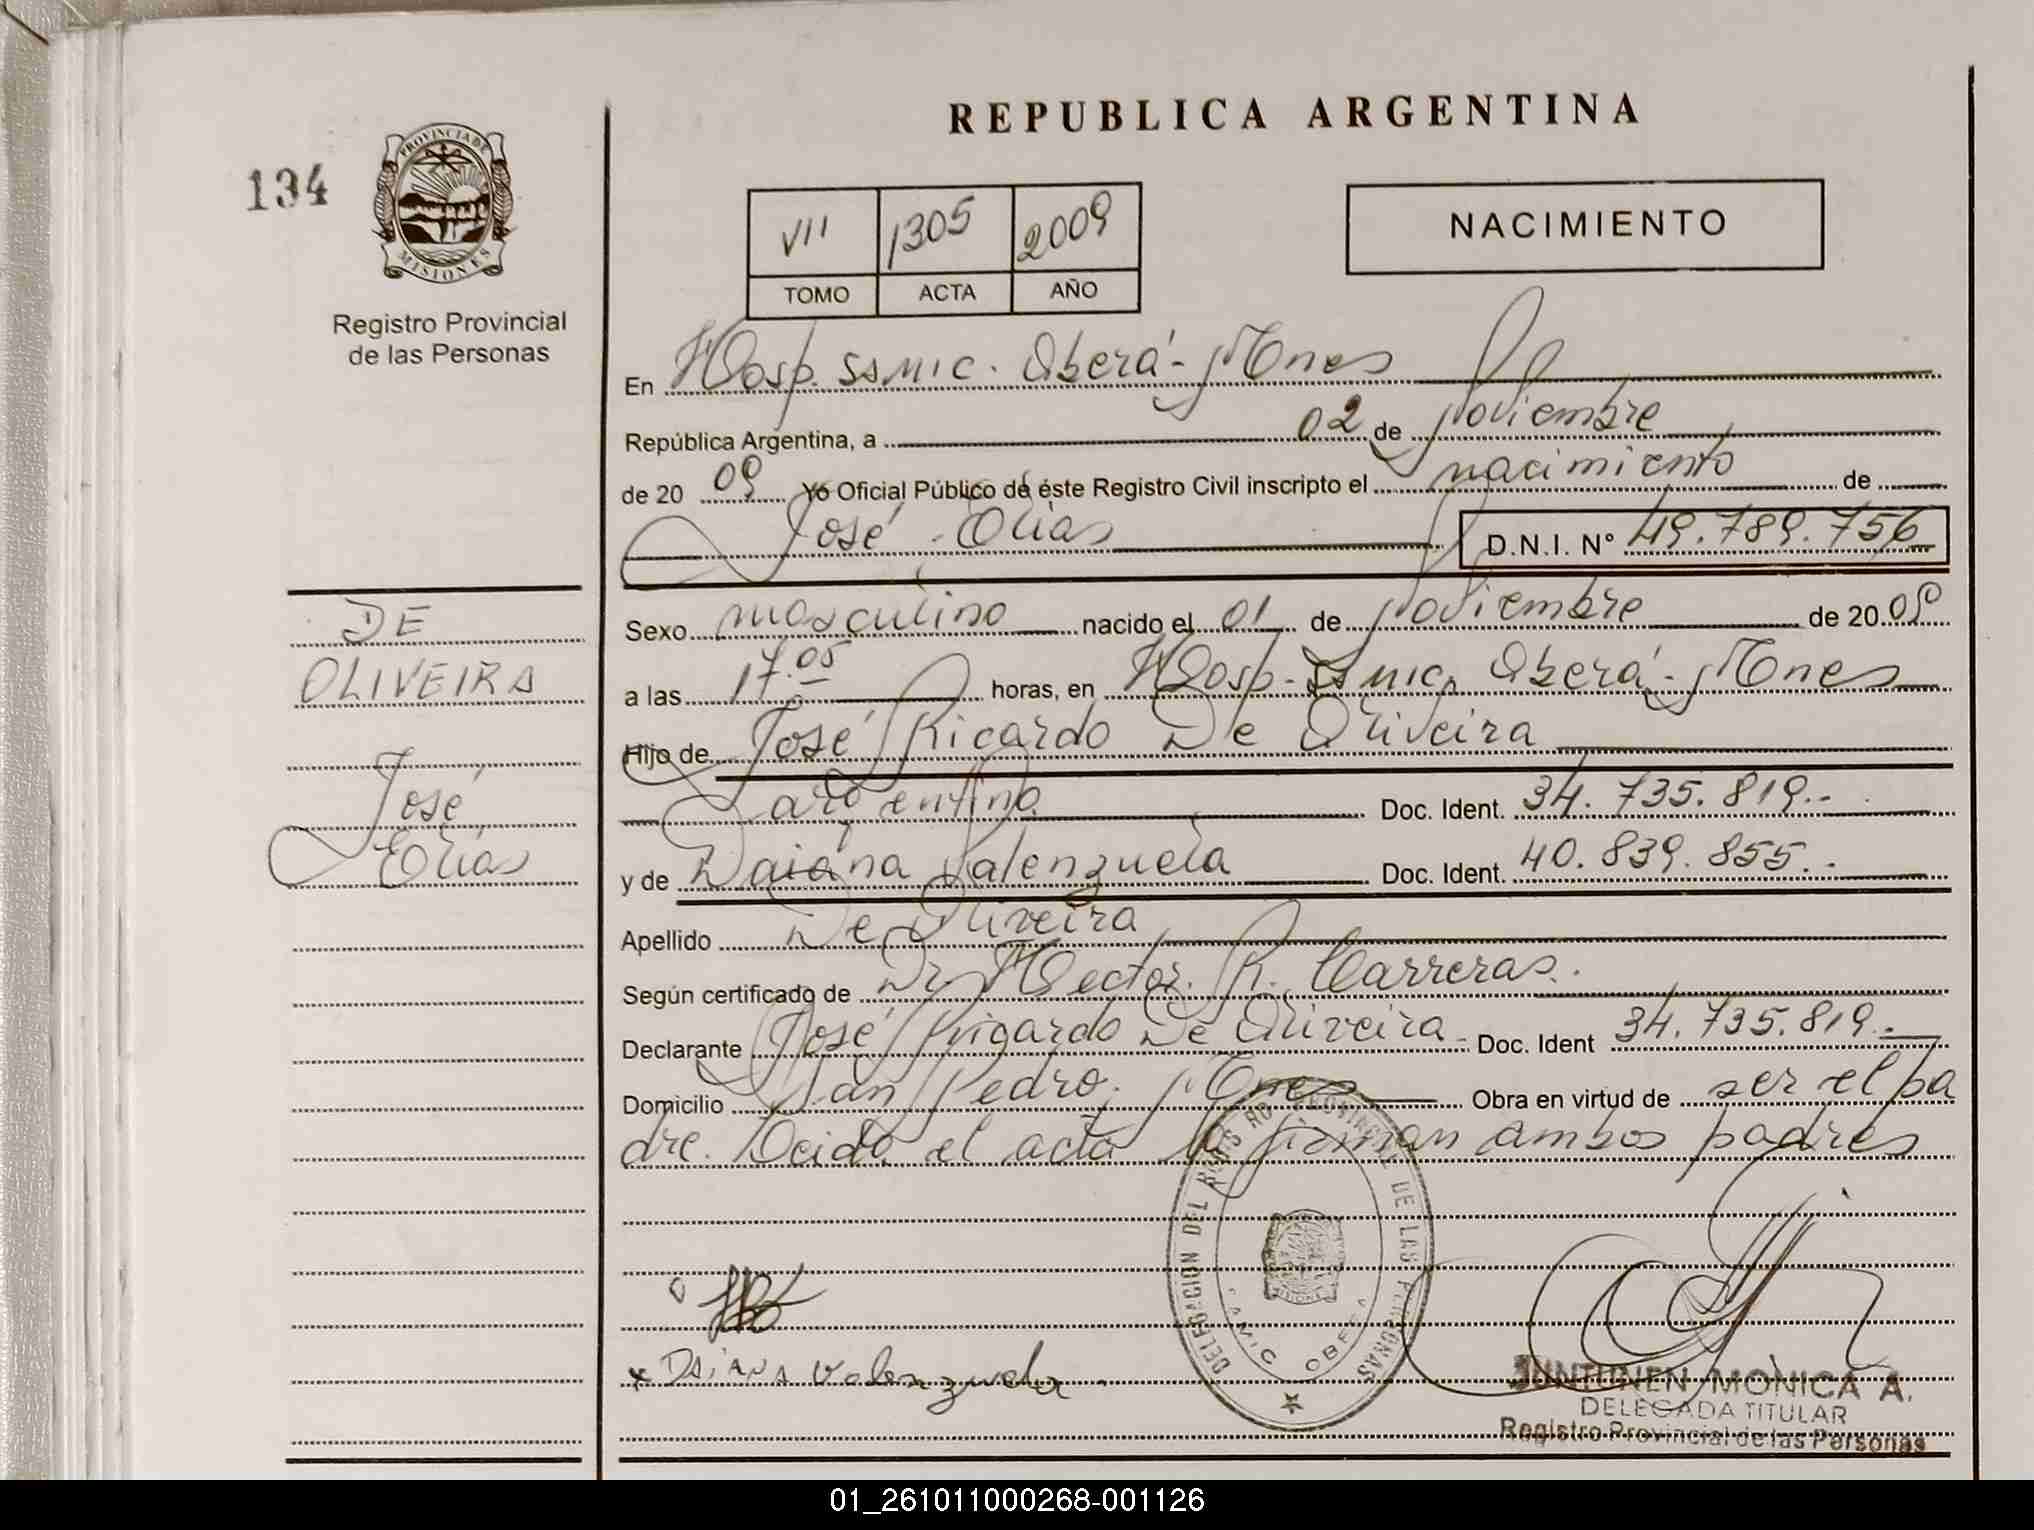 REPUBLICA ARGENTINA
134
PROVINCIA DE
MISIONES
Registro Provincial
de las Personas
VII 1305 2009
TOMO ACTA AÑO
NACIMIENTO
En Hosp. SAMIC. Oberá - Mnes
República Argentina, a 02 de Noviembre
de 20 09 Yo Oficial Público de éste Registro Civil inscripto el nacimiento de
José Elías D.N.I. Nº 49.789.756
DE
OLIVEIRA
José
Elías
Sexo masculino nacido el 01 de Noviembre de 20 09
a las 17.05 horas, en Hosp. SAMIC. Oberá - Mnes
Hijo de José Ricardo De Oliveira
argentino Doc. Ident. 34.735.819.-
y de Daiana Valenzuela Doc. Ident. 40.839.855.-
Apellido De Oliveira
Según certificado de Dr Hector R. Carreras.
Declarante José Ricardo De Oliveira Doc. Ident 34.735.819.-
Domicilio San Pedro. Mnes Obra en virtud de ser el pa
dre. Leida el acta la firman ambos padres
DELEGACION DEL REGISTRO PROVINCIAL DE LAS PERSONAS
SAMIC OBERA
x Daiana Valenzuela
JUNTUNEN MONICA A.
DELEGADA TITULAR
Registro Provincial de las Personas
01_261011000268-001126